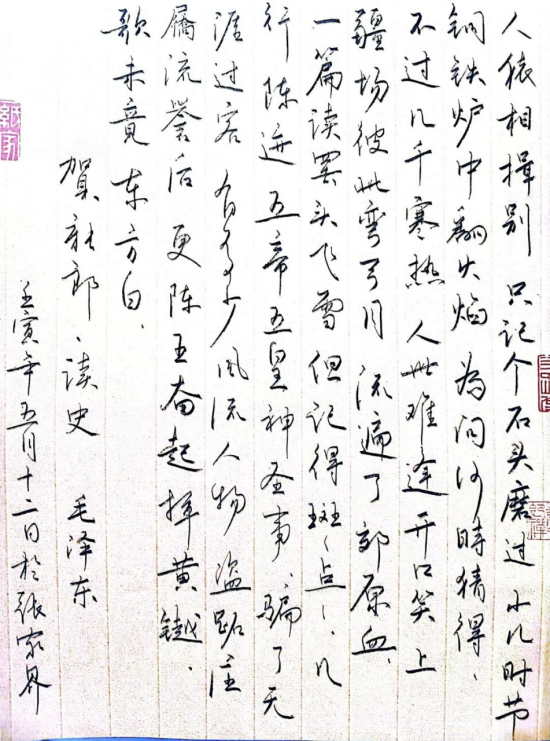 人猿相揖别 只记个石头磨过 小儿时节
铜铁炉中翻火焰 为问何時猜得、
不过几千寒热 人世难逢开口笑 上
疆场彼此弯弓月 流遍了 郊原血、
一篇读罢头飞雪 但记得斑々点々、几
行陈迹 五帝五皇神圣事、骗了无
涯过客 有多少风流人物 盗跖庄
屩流誉后 更陈王奋起挥黄钺.
歌未竟 东方白、
贺新郎、读史 毛泽东
壬寅年五月十二日於张家界